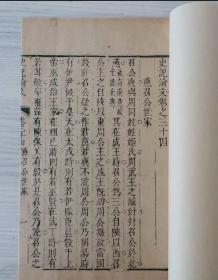 史記論文卷之三十四
燕召公世家
召公奭與周同姓姓姬氏周武王之滅紂封召公於北
燕其在成王時召公為三公自陝以西召
公主之自陝以東周公主之成王既幼周公攝政當國
踐祚召公疑之作君奭君奭不說周公周公乃稱湯時
有伊尹假于皇天在太戊時則有若伊陟臣扈假于上
帝巫咸治王家在祖乙時則有若巫賢在武丁時則有
若甘般率維茲有陳保乂有殷於是召公乃說召公之
史記論文 卷三十四 燕召公世家